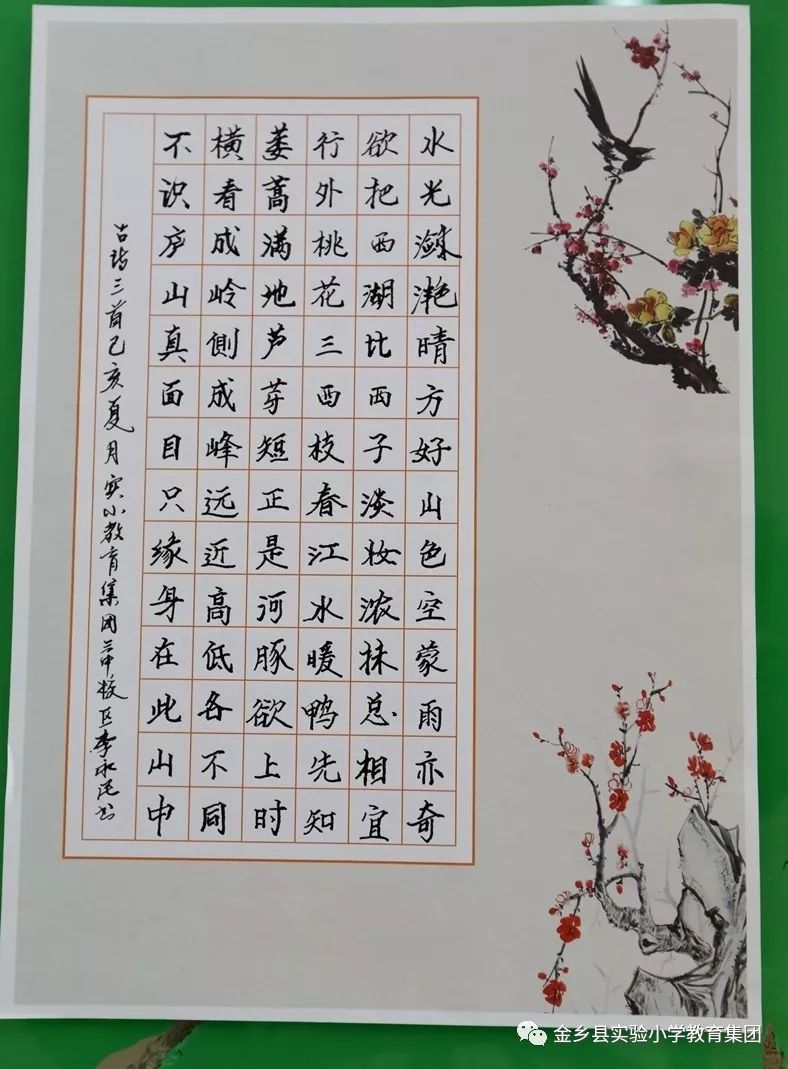 水光潋滟晴方好山色空蒙雨亦奇
欲把西湖比西子淡妆浓抹总相宜
竹外桃花三两枝春江水暖鸭先知
蒌蒿满地芦芽短正是河豚欲上时
横看成岭側成峰远近高低各不同
不识庐山真面目只缘身在此山中
古诗三首己亥夏月实小教育集团校区李永民书
金乡县实验小学教育集团